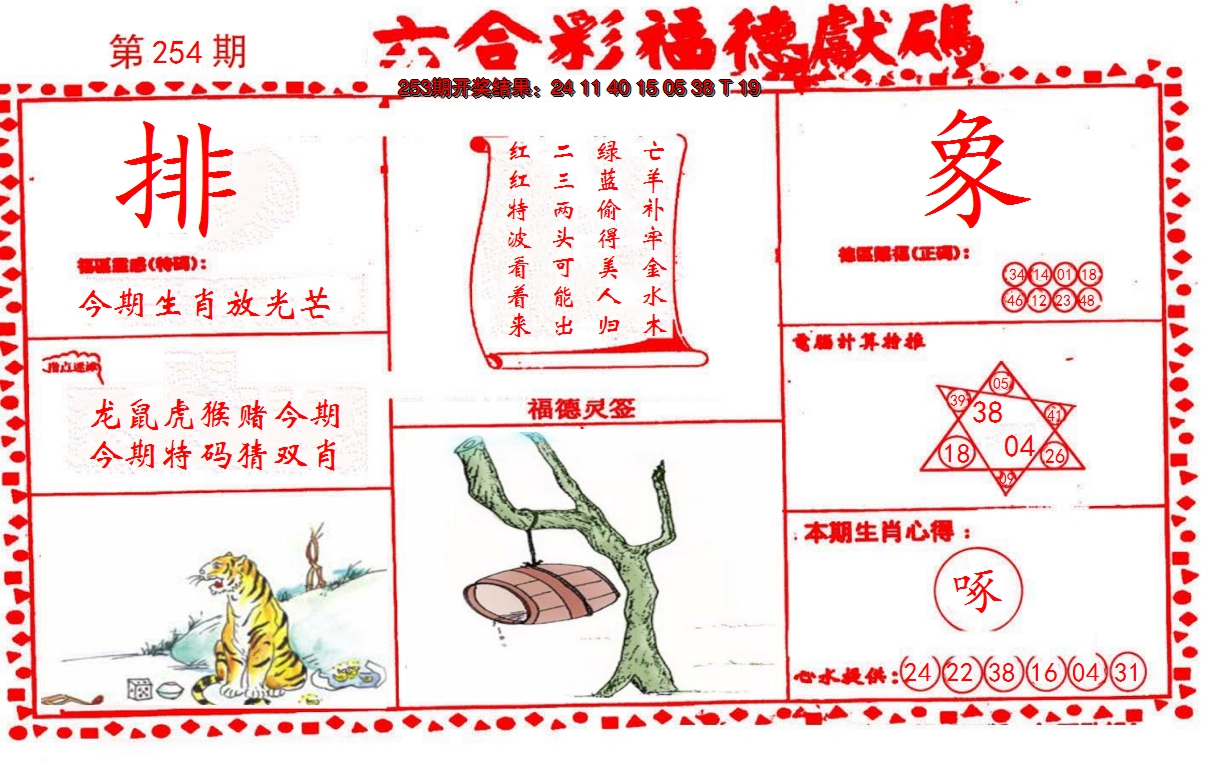 第 254 期
六合彩福德獻碼
253期开奖结果：24 11 40 15 05 38 T 19
排
福區靈感(特碼)：
今期生肖放光芒
指点迷津
龙鼠虎猴赌今期
今期特码猜双肖
亡羊补牢金水木
绿蓝偷得美人归
二三两头可能出
红红特波看着来
福德灵签
象
德區賜福(正碼)：
34 14 01 18
46 12 23 48
電腦計算檢推
05
39 38 41
18 04 26
09
本期生肖心得：
啄
心水提供：24 22 38 16 04 31